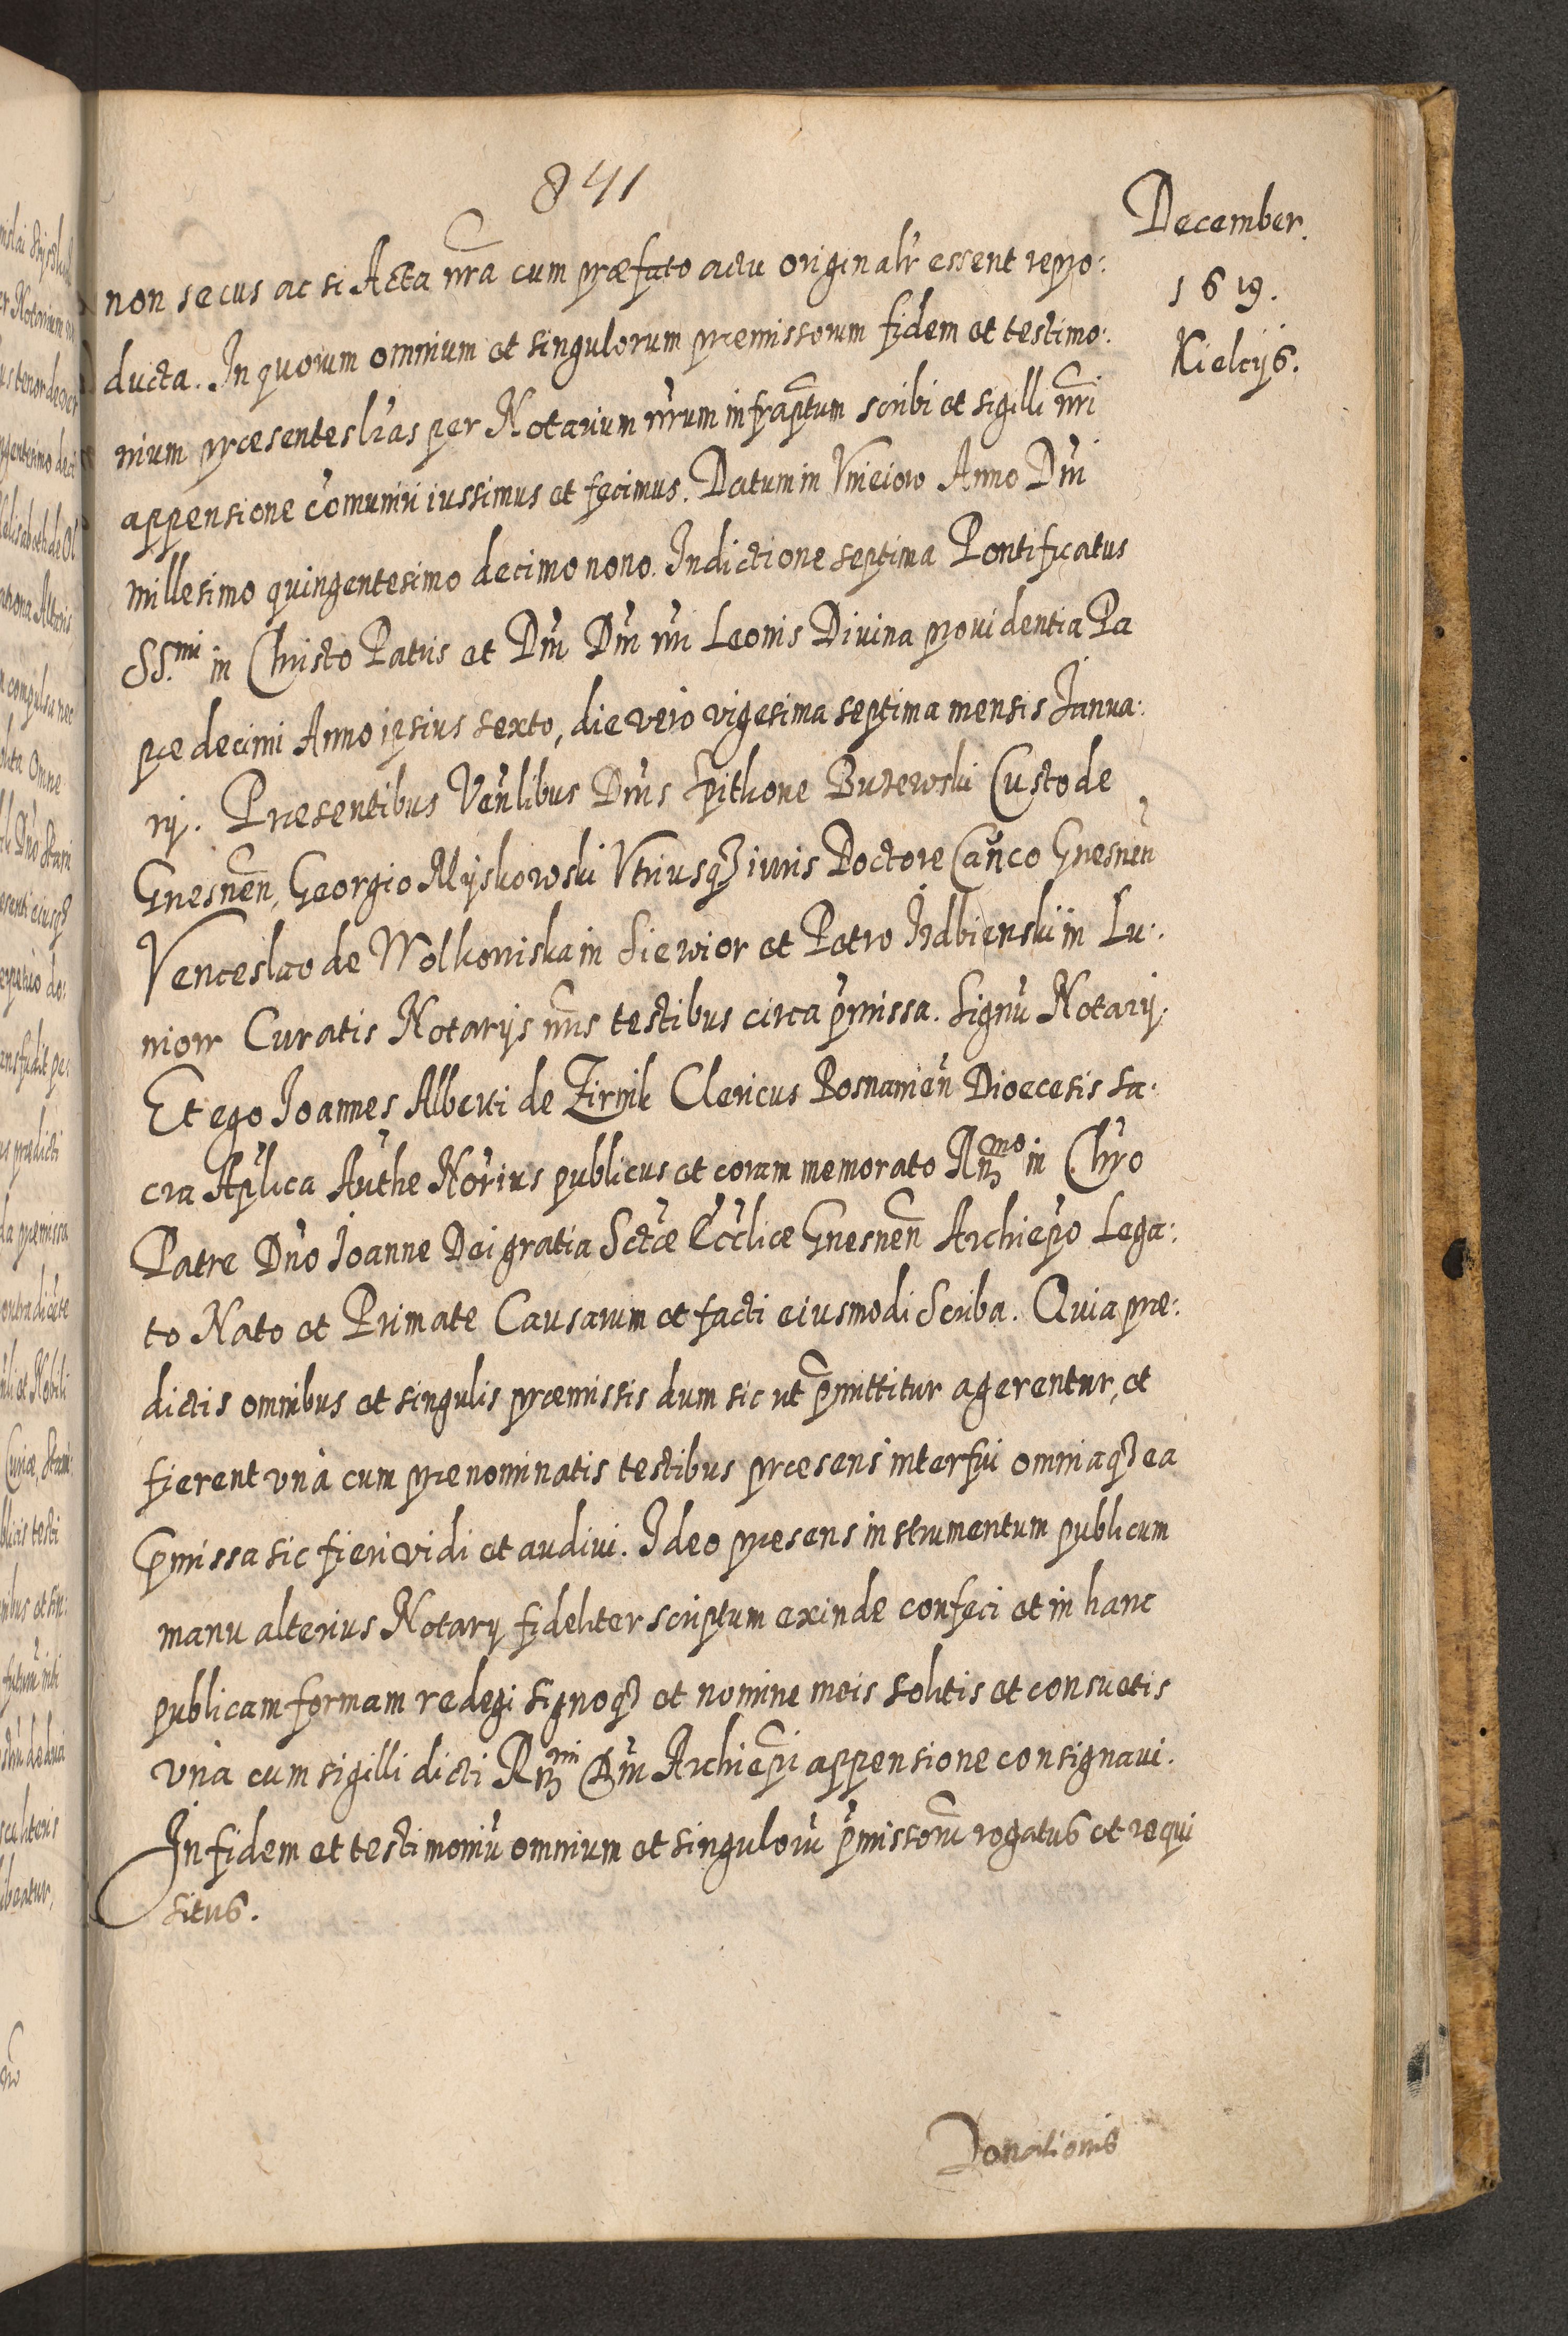 841
December.
1619.
Kielcijs.
non secus ac si Acta nr̃a cum præfato actu originalr̃ essent repro:
ducta. In quorum omnium et singulorum præmissorum fidem et testimo:
nium præsentes lr̃as per Notarium nr̃um infrap̃tum scribi et sigilli nr̃i
appensione com̃uniri iussimus et fecimus. Datum in Vnieiow Anno Dn̄i
millesimo quingentesimo decimo nono. Indictione septima Pontificatus
SS.mi in Christo Patris et Dn̄i Dn̄i nr̃i Leonis Diuina prouidentia Pa
pæ decimi Anno ipsius sexto, die vero vigesima septima mensis Ianua:
rij. Præsentibus Ven̄libus Dn̄is Spithone Buzewski Custode
Gnesnen̄, Georgio Myskowski Vtriusq3 iuris Doctore Can̄co Gnesnen̄
Venceslao de Wolkoniska in Siewior et Petro Izdbienski in Lu:
niow Curatis Notarijs nr̃is testibus circa p̃missa. Signū Notarij.
Et ego Ioannes Alberti de Zirnik Clericus Posnanien̄ Dioecesis sa:
cra Ap̃lica Auth̃e Nor̃ius publicus et coram memorato Rn3mo in Chr̃o
Patre Dn̄o Ioanne Dei gratia Sctæ Ecc̃liæ Gnesnen̄ Archiep̃o Lega:
to Nato et Primate Causarum et facti eiusmodi Scriba. Quia præ:
dictis omnibus et singulis præmissis dum sic ut p̃mittitur agerentur, et
fierent vnà cum prænominatis testibus præsens interfui omniaq3 ea
p̃missa sic fieri vidi et audiui. Ideo præsens instrumentum publicum
manu alterius Notarij fideliter scriptum exinde confeci et in hanc
publicam formam redegi signoq3 et nomine meis solitis et consuetis
vnà cum sigilli dicti Rn3mi Dn̄i Archiep̃i appensione consignaui.
In fidem et testimoniū omnium et singulorū p̃missorū rogatus et requi
situs.
Donationis